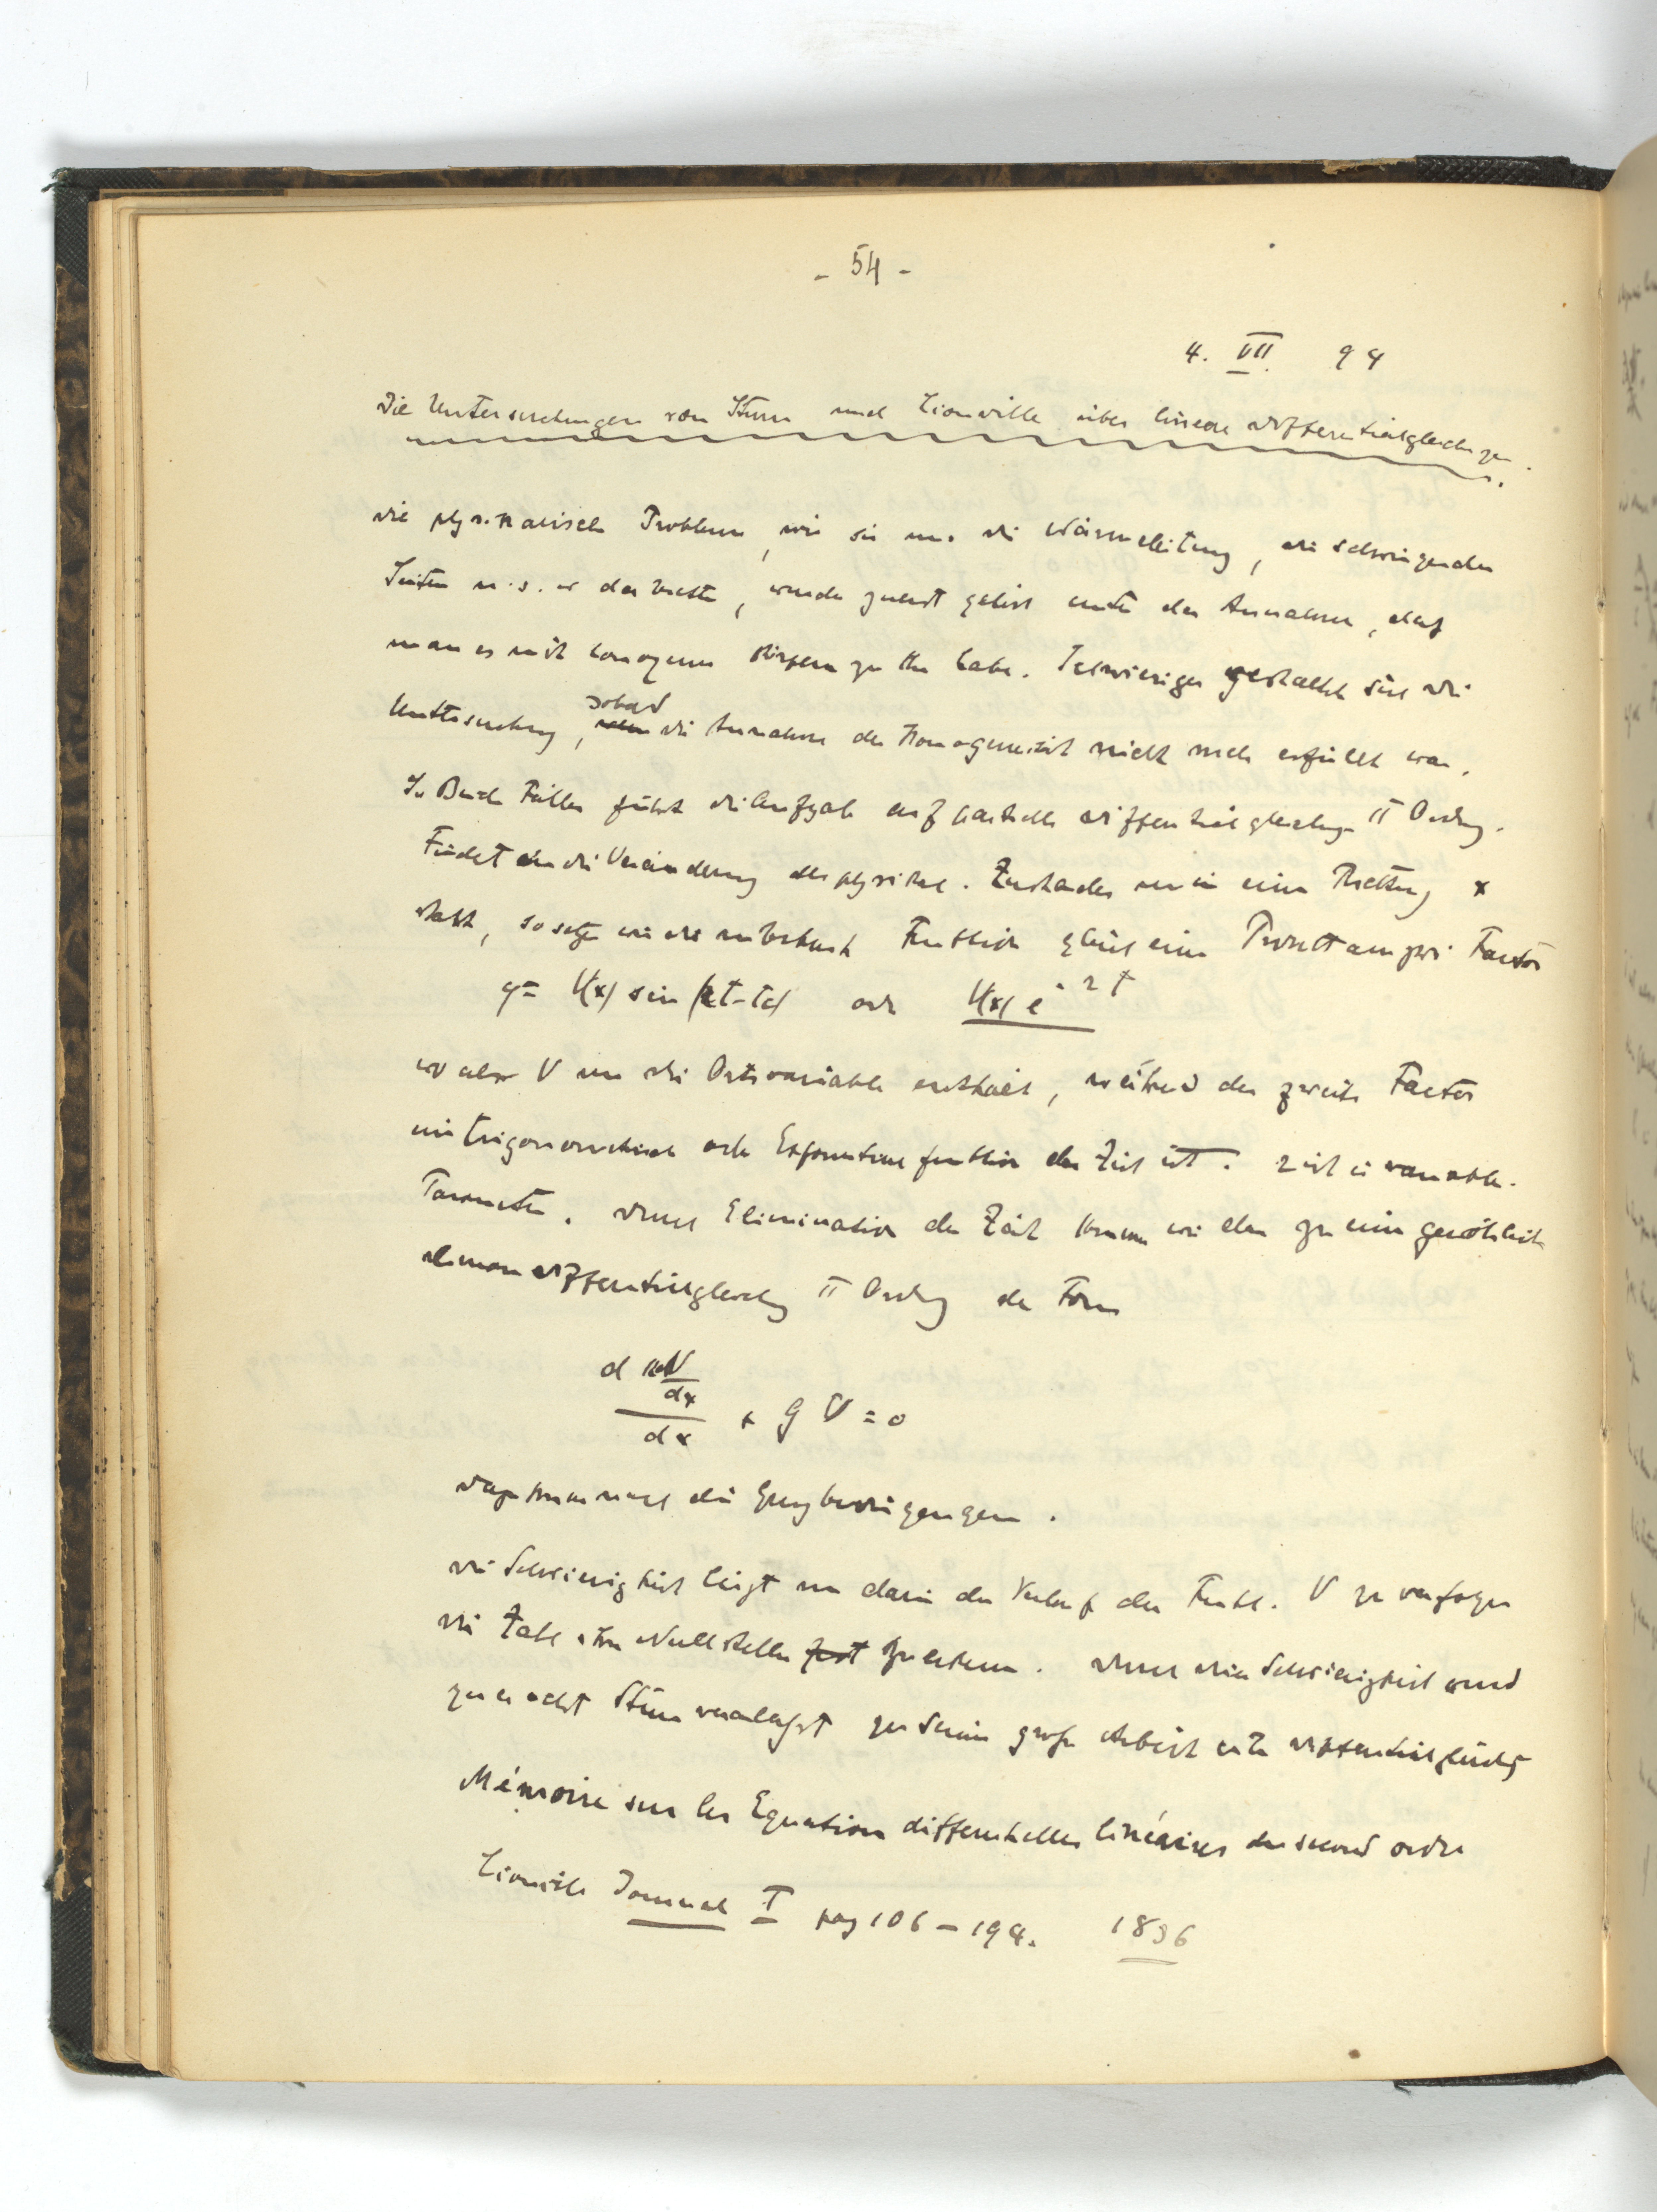 - 54 -
4. VII. 94
Die Untersuchungen von Sturm und Liouville über lineare Differentialgleichungen.
Die physikalischen Probleme, wie sie uns die Wärmeleitung, die schwingenden
Saiten u.s.w darbieten, wurden zuerst gelöst unter der Annahme, daß
man es mit homogenen Körpern zu thun habe. Schwieriger gestaltet sich die
Untersuchung, sobald die Annahme der Homogeneität nicht mehr erfüllt war.
In Beiden Fällen führt die Aufgabe auf partielle Differentialgleichungen II Ordng.
Findet die Veränderung des physikal. Zustandes nur in einer Richtung x
statt, so setzen wir die unbekannte Funktion gleich einem Product aus zwei Factoren
y = V(x) sin (rt-τc) oder V(x) e^{-rt}
wo also V nur die Ortsvariable enthält, während der zweite Factor
ein trigonometrische oder Exponentialfunktion der Zeit ist. r ist ein variabler
Parameter. Durch Elimination der Zeit kommen wir dann zu einer gewöhnlichen
linearen Differentialgleichung II Ordng der Form
d K dV/dx / dx + g V = 0
Dazu kommen noch die Grenzbedingungen.
Die Schwierigkeit liegt nun darin den Verlauf der Funkt. V zu verfolgen
die Zahl ihrer Nullstellen fest zu erkennen. Durch diese Schwierigkeit wurd
zu einer acht Sturm veranlaßt zu seiner großen Arbeit über Differentialgleichg
Mémoire sur les Equations différentielles linéaires du second ordre
Liouville Journal I pag 106 – 194. 1836